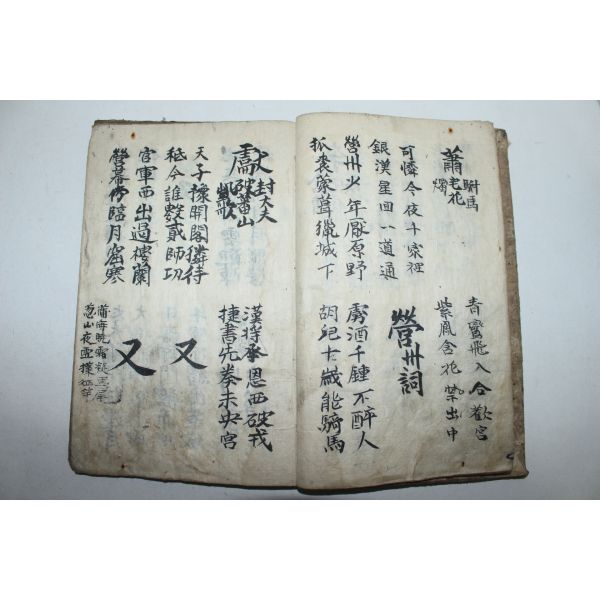 蕭駙馬宅花燭
青鸞飛入合歡宮
紫鳳含花禁出中
可憐今夜千家裡
銀漢星回一道通
營州詞
營州少年厭原野
狐裘蒙葺獵城下
虜酒千鍾不醉人
胡兒十歲能騎馬
獻封大夫破播山凱歌
漢將奉恩西破戎
捷書先奏未央宮
天子預開閣隣待
秪今誰數貳師功
又
官軍西出過樓蘭
營幕傍臨月窟寒
又
蒲海曉霜凝馬尾
葱山夜雪撲旌竿